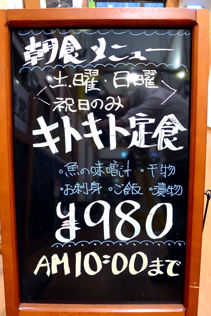 朝食メニュー
土曜・日曜
祝日のみ
キトキト定食
・魚の味噌汁・干物
・お刺身・ご飯・漬物
¥980
AM10:00まで